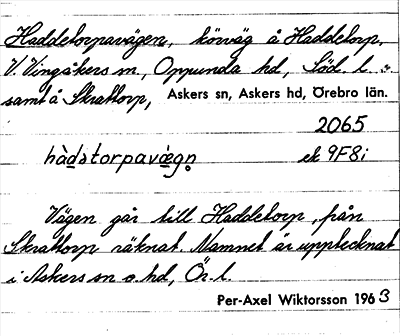 Haddetorpavägen, körväg å Haddetorp,
V. Vingåkers sn, Oppunda hd, Söd. l.
samt å Skrattorp, Askers sn, Askers hd, Örebro län.
2065
hàdətorpavæ̀gn̥ ek 9F8i
Vägen går till Haddetorp, från
Skrattorp räknat. Namnet är upptecknat
i Askers sn o. hd, Ör. l.
Per-Axel Wiktorsson 1963